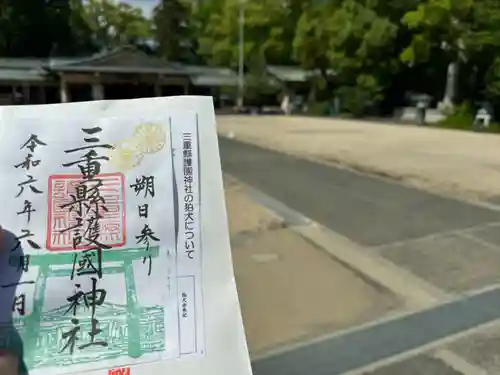 朔日参り
三重縣護國神社
令和六年六月一日
三重縣護國神社の狛犬について